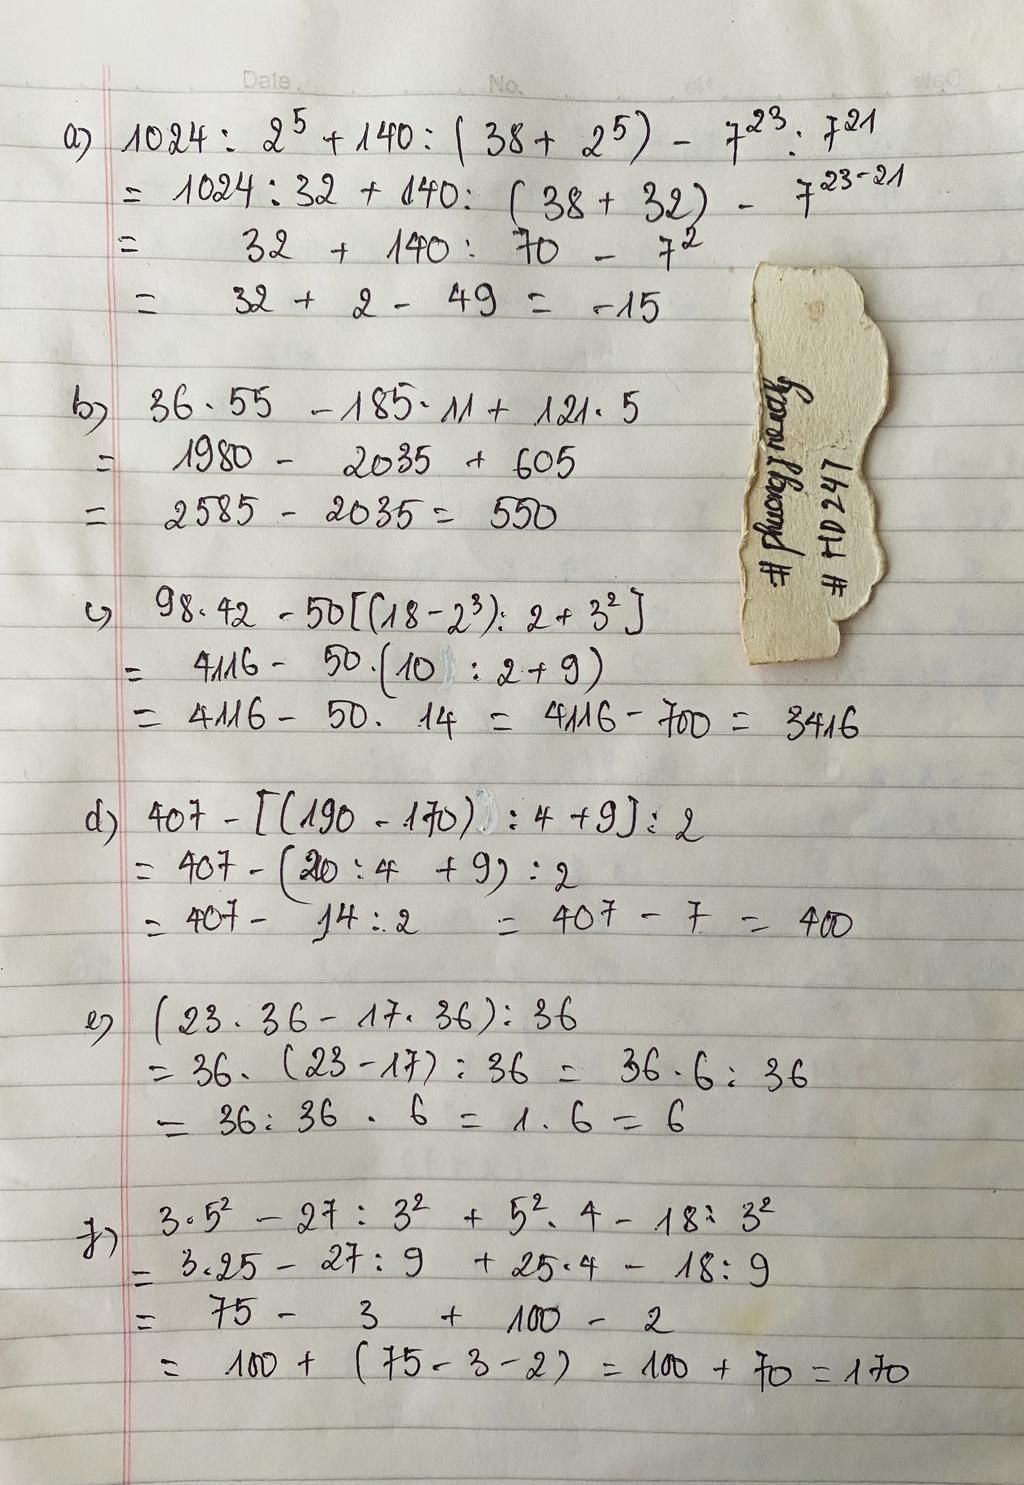 Date No.
a) 1024 : 2⁵ + 140 : ( 38 + 2⁵ ) - 7²³ : 7²¹
= 1024 : 32 + 140 : ( 38 + 32 ) - 7²³⁻²¹
= 32 + 140 : 70 - 7²
= 32 + 2 - 49 = -15
b) 36 . 55 - 185 . 11 + 121 . 5
= 1980 - 2035 + 605
= 2585 - 2035 = 550
c) 98 . 42 - 50 [ ( 18 - 2³ ) : 2 + 3² ]
= 4116 - 50 . ( 10 : 2 + 9 )
= 4116 - 50 . 14 = 4116 - 700 = 3416
d) 407 - [ ( 190 - 170 ) : 4 + 9 ] : 2
= 407 - ( 20 : 4 + 9 ) : 2
= 407 - 14 : 2 = 407 - 7 = 400
e) ( 23 . 36 - 17 . 36 ) : 36
= 36 . ( 23 - 17 ) : 36 = 36 . 6 : 36
= 36 : 36 . 6 = 1 . 6 = 6
f) 3 . 5² - 27 : 3² + 5² . 4 - 18 : 3²
= 3 . 25 - 27 : 9 + 25 . 4 - 18 : 9
= 75 - 3 + 100 - 2
= 100 + ( 75 - 3 - 2 ) = 100 + 70 = 170